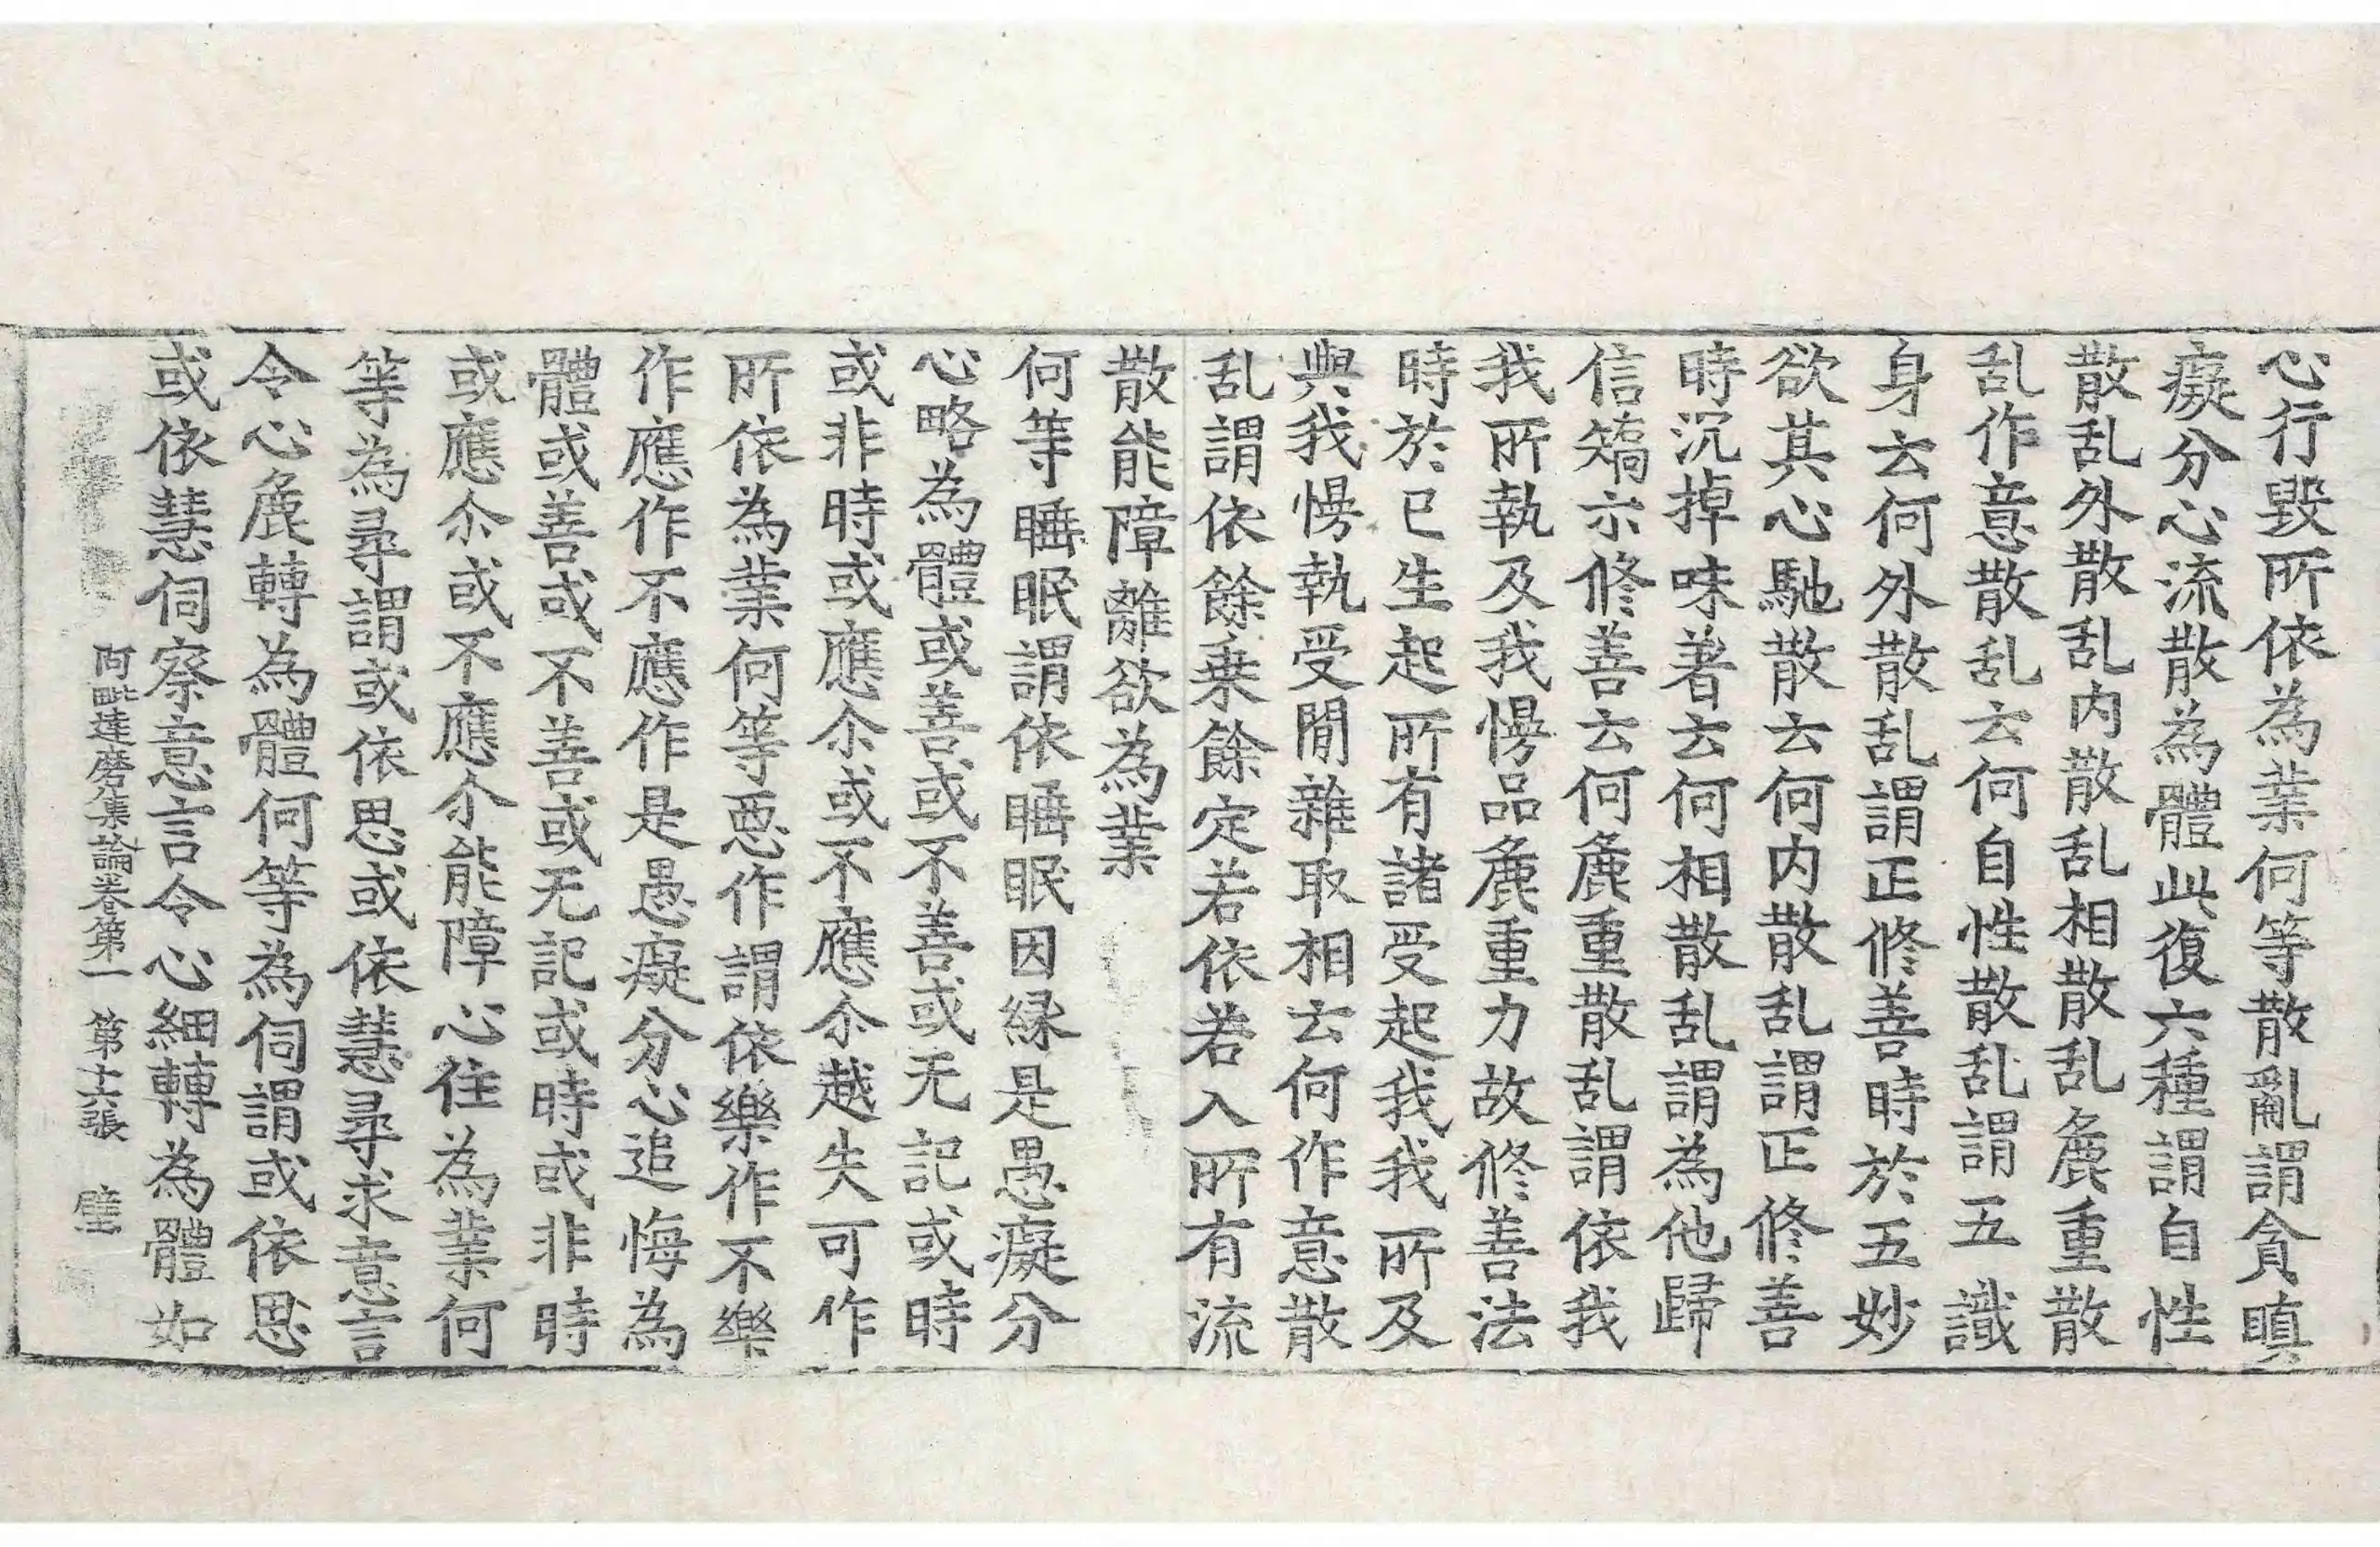 心行毀所依為業何等散亂謂貪瞋
癡分心流散為體此復六種謂自性
散乱外散乱内散乱相散乱麁重散
乱作意散乱云何自性散乱謂五識
身云何外散乱謂正修善時於五妙
欲其心馳散云何内散乱謂正修善
時沉掉味著云何相散乱謂為他歸
信矯示修善云何麁重散乱謂依我
我所執及我慢品麁重力故修善法
時於已生起所有諸受起我我所及
與我慢執受間雜取相云何作意散
乱謂依餘乗餘定若依若入所有流
散能障離欲為業
何等睡眠謂依睡眠因縁是愚癡分
心略為體或善或不善或无記或時
或非時或應尒或不應尒越失可作
所依為業何等惡作謂依樂作不樂
作應作不應作是愚癡分心追悔為
體或善或不善或无記或時或非時
或應尒或不應尒能障心住為業何
等為尋謂或依思或依慧尋求意言
令心麁轉為體何等為伺謂或依思
或依慧伺察意言令心細轉為體如
阿毗達磨集論卷第一 第十六張 璧